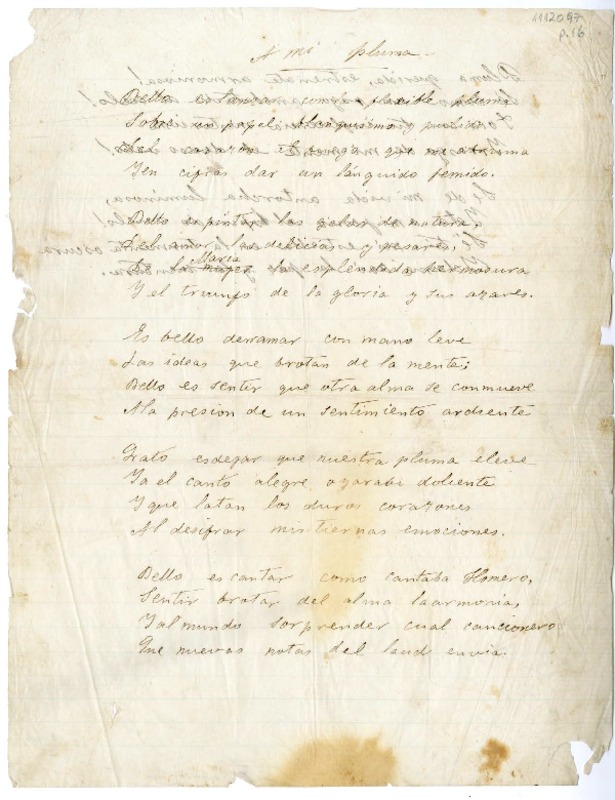 1112097
p.16
A mi pluma.
Bello es tomar flexible pluma
Sobre un papel blanquísimo y pulido
que me abruma
Y en cifras dar un lánguido gemido.
Bello es pintar las galas de natura,
Del amor las delicias y pesares,
María
De la mujer la espléndida hermosura
Y el triunfo de la gloria y sus azares.
Es bello derramar con mano leve
Las ideas que brotan de la mente;
Bello es sentir que otra alma se conmueve
A la presion de un sentimiento ardiente
Grato es dejar que nuestra pluma eleve
Ya el canto alegre o yarabí doliente
Y que latan los duros corazones
Al desifrar mis tiernas emociones.
Bello es cantar como cantaba Homero,
Sentir brotar del alma la armonia,
Y al mundo sorprender cual cancionero
Que nuevas notas del laud envia.